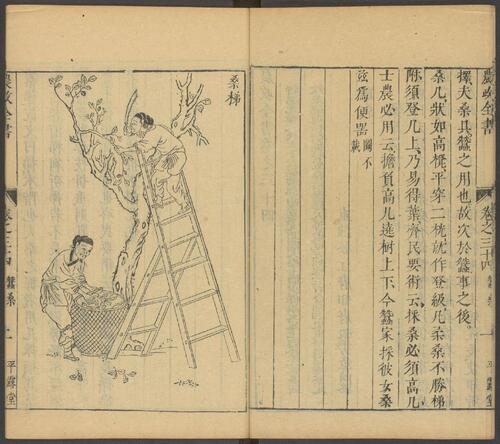 農政全書 卷之三十四 蠶桑 一 平露堂
擇夫桑具蠶之用也故次於蠶事之後。
桑几狀如高櫈平穿二桄就作登級凡柔桑不勝梯
附須登几上乃易得葉齊民要術云採桑必須高几
士農必用云擔負高几遶樹上下今蠶家採彼女桑
兹爲便器 圖不載
桑梯
農政全書 卷之三十四 蠶桑 二 平露堂